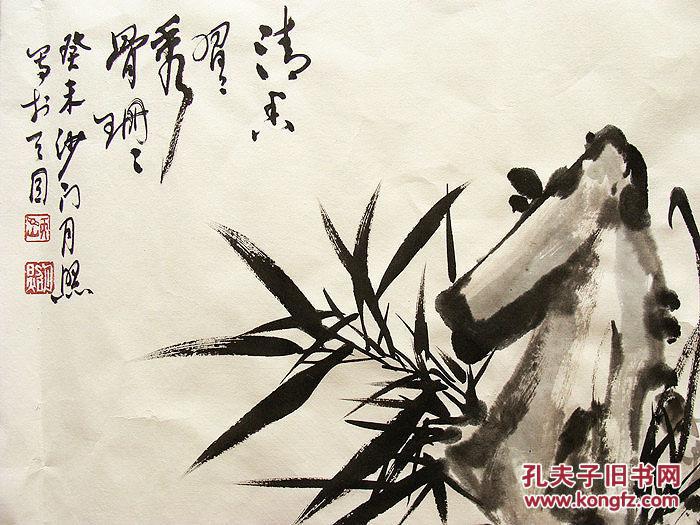 清香
習々
秀
骨珊々
癸未沙门月照
写於天目
孔夫子旧书网
www.kongfz.com